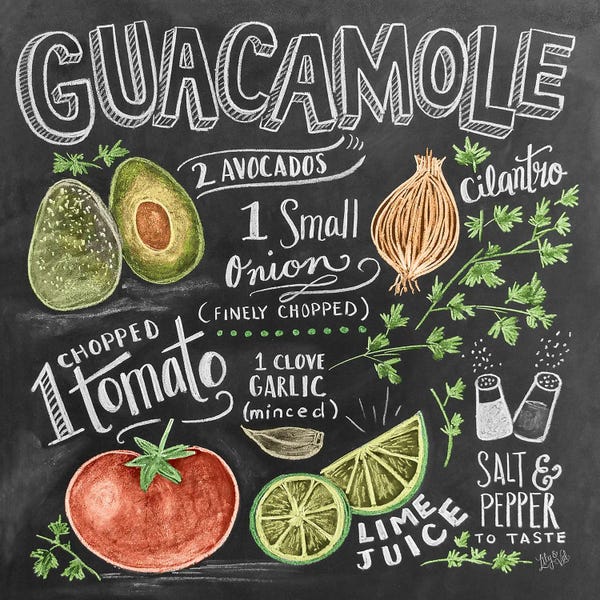 GUACAMOLE
2 AVOCADOS
cilantro
1 Small
Onion
(FINELY CHOPPED)
1 CHOPPED
tomato
1 CLOVE
GARLIC
(minced)
SALT &
PEPPER
TO TASTE
LIME
JUICE
Lily & Val